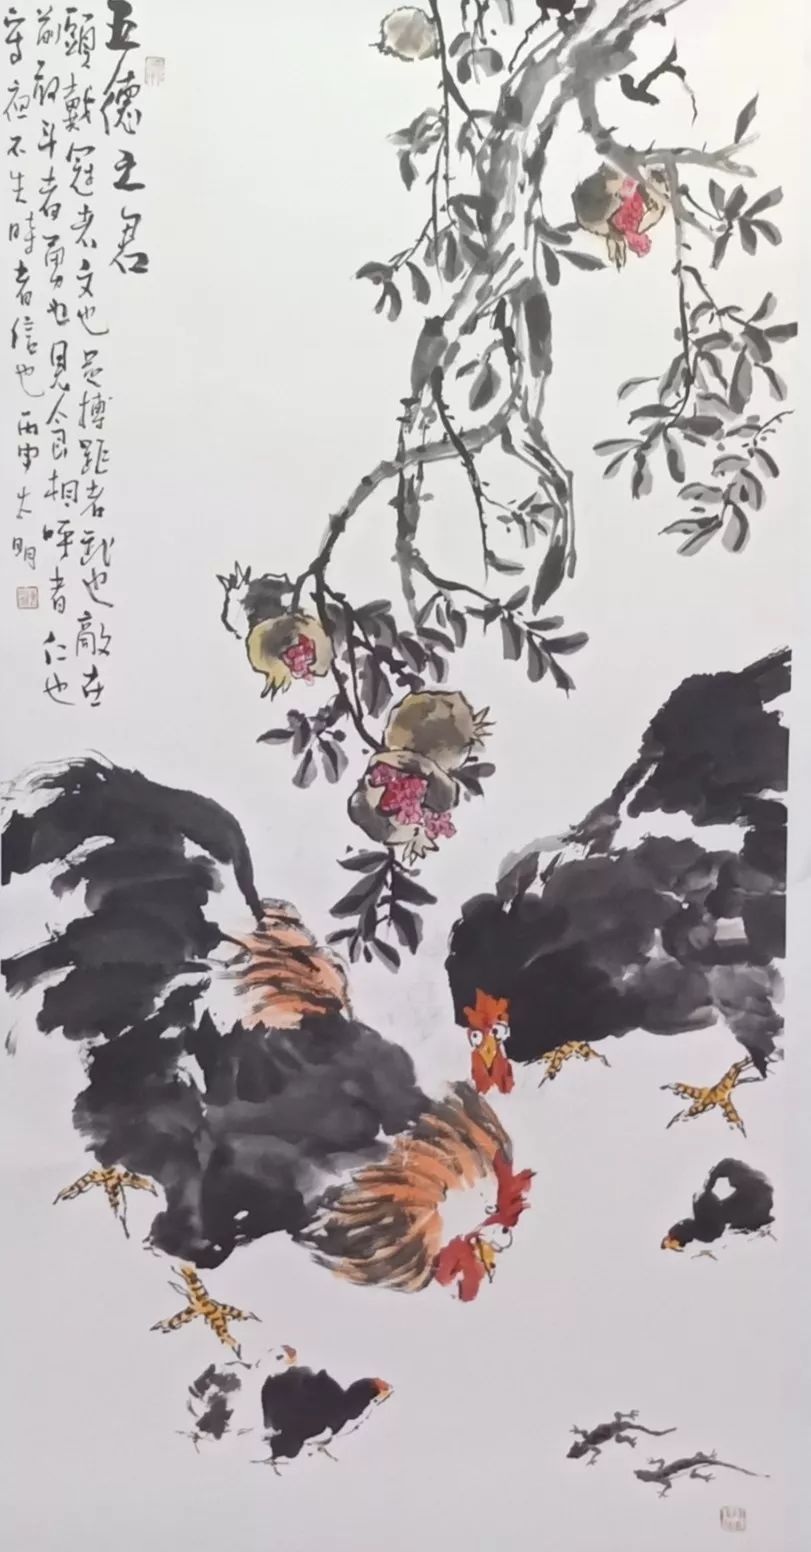 五德之君
頭戴冠者文也足搏距者武也敵在
前敢斗者勇也見食相呼者仁也
守夜不失時者信也丙申大明